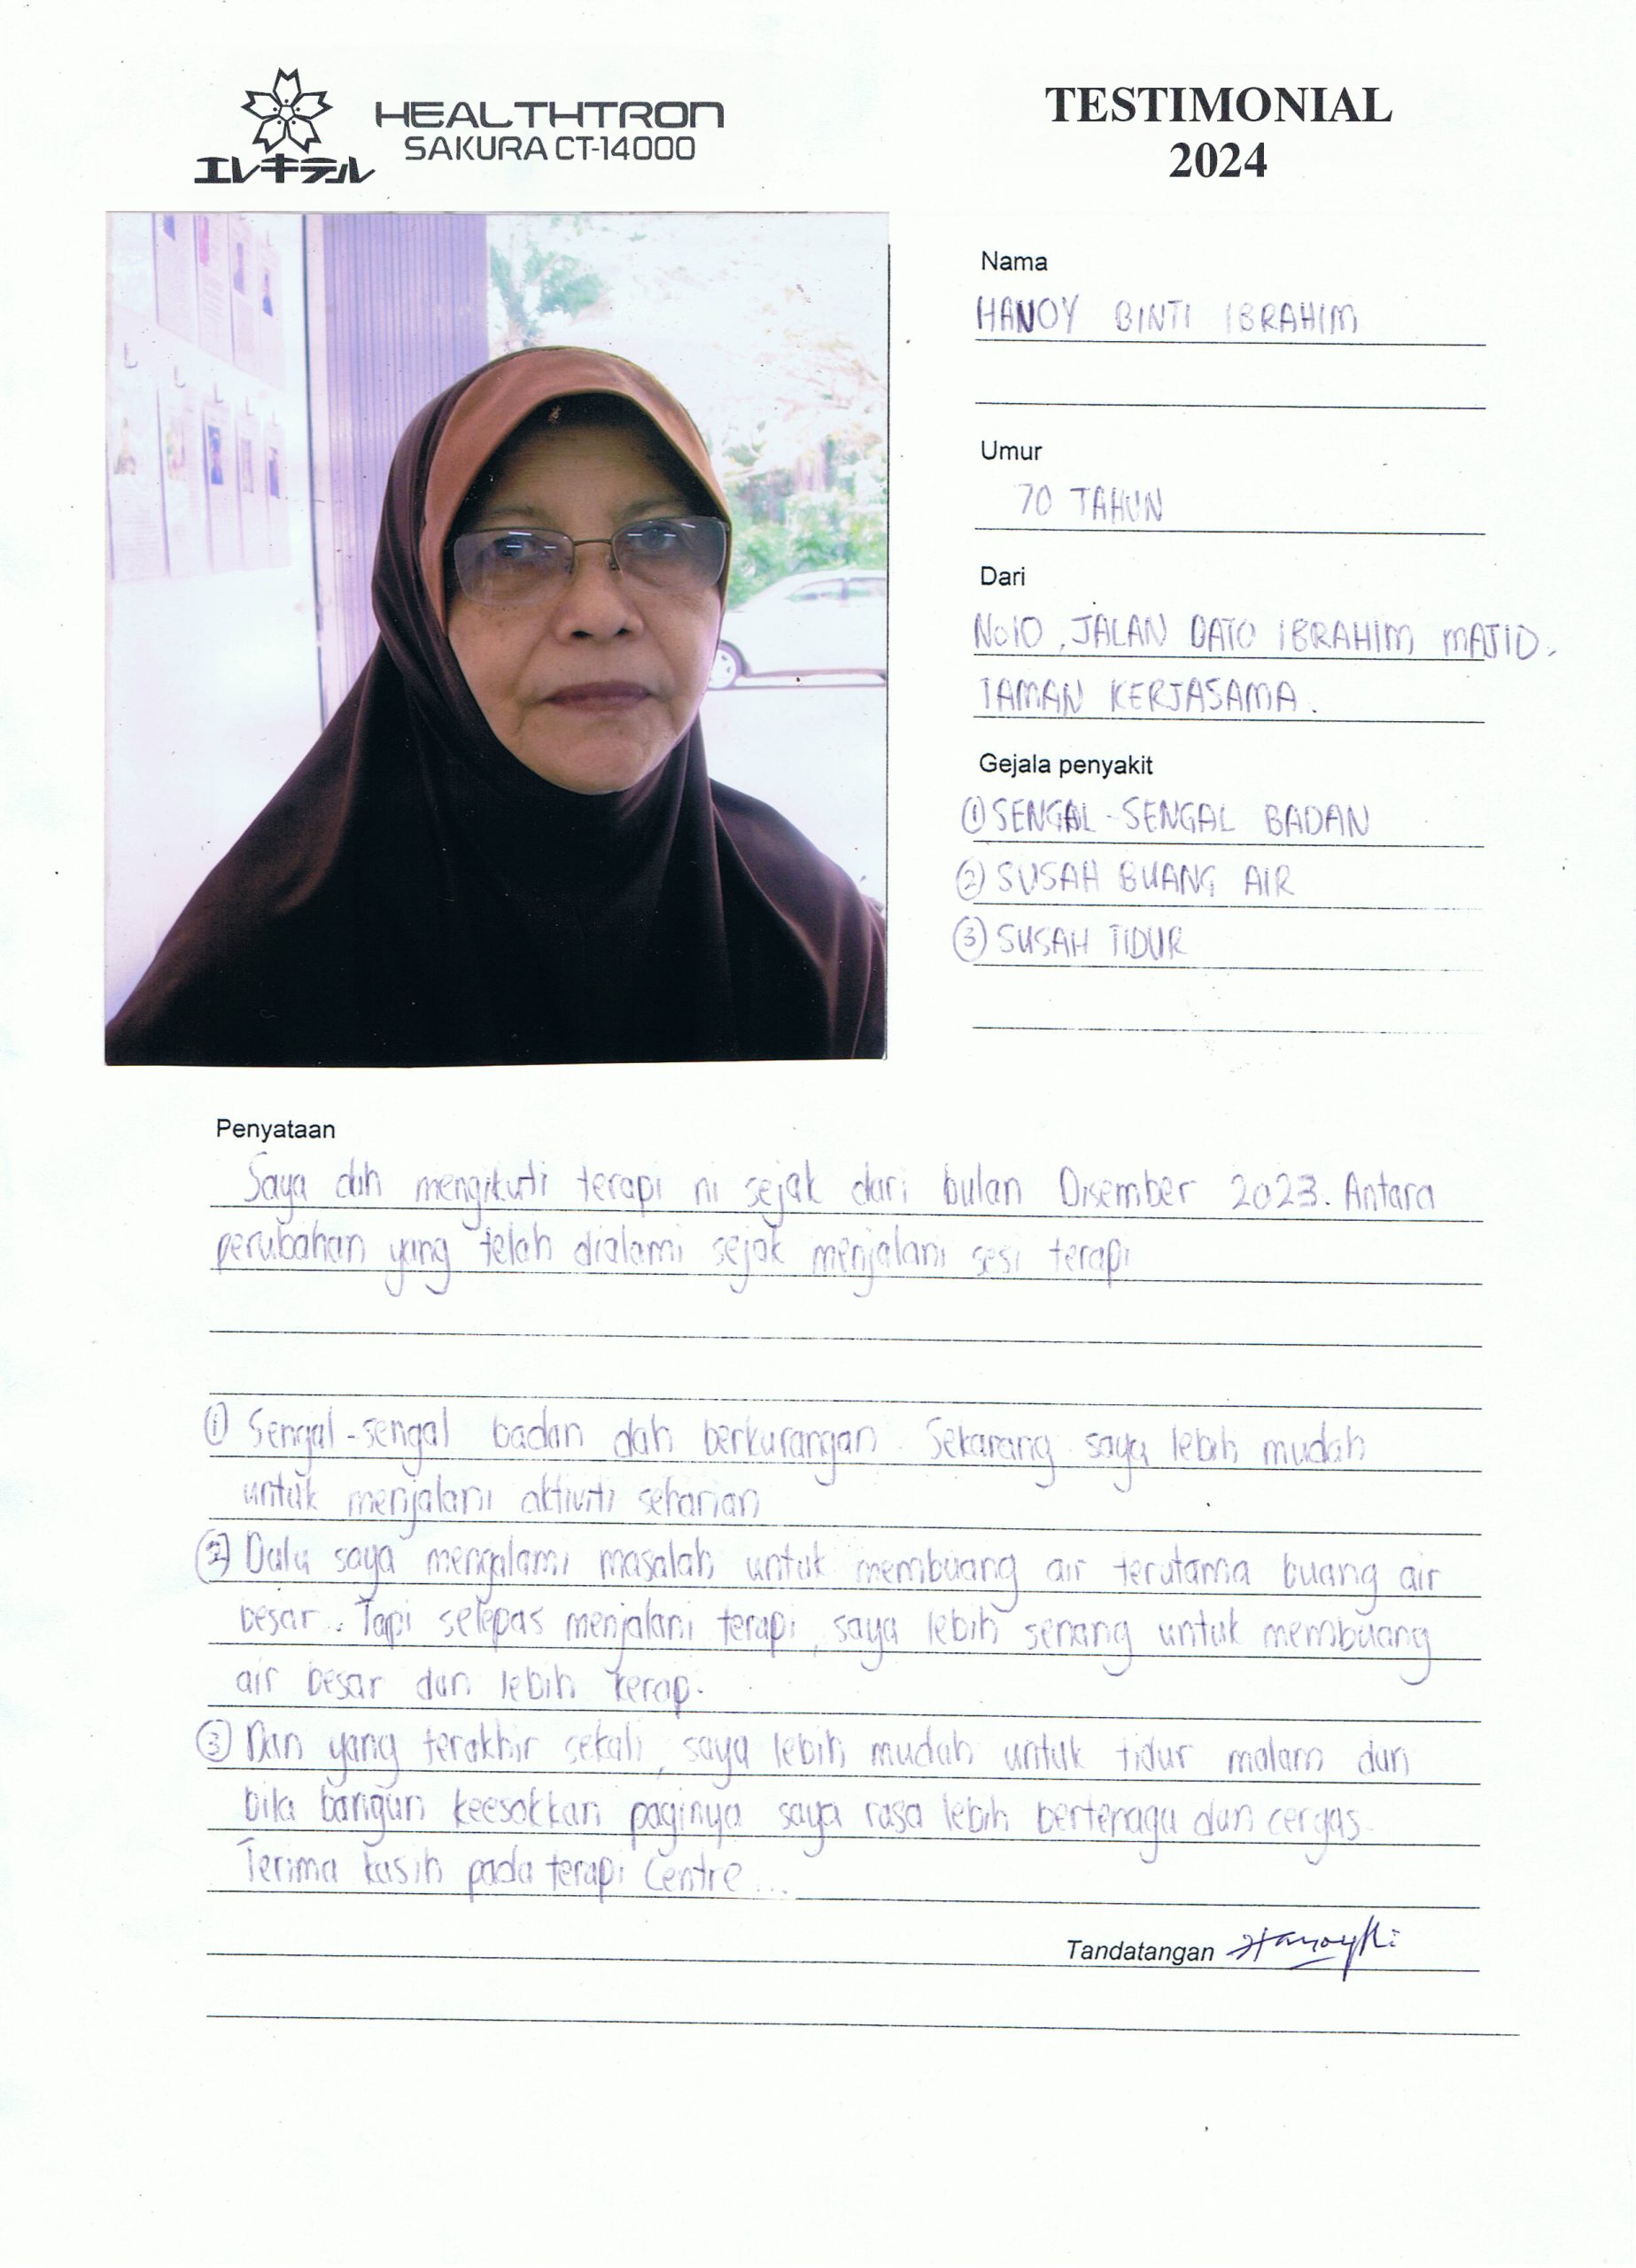 エレキテル
HEALTHTRON
SAKURA CT-14000
TESTIMONIAL
2024
Nama
HANOY BINTI IBRAHIM
Umur
70 TAHUN
Dari
No10, JALAN DATO IBRAHIM MAJID.
TAMAN KERJASAMA.
Gejala penyakit
① SENGAL-SENGAL BADAN
② SUSAH BUANG AIR
③ SUSAH TIDUR
Penyataan
Saya dah mengikuti terapi ni sejak dari bulan Disember 2023. Antara
perubahan yang telah dialami sejak menjalani sesi terapi
① Sengal-sengal badan dah berkurangan. Sekarang saya lebih mudah
untuk menjalani aktiviti seharian
② Dulu saya mengalami masalah untuk membuang air terutama buang air
besar. Tapi selepas menjalani terapi, saya lebih senang untuk membuang
air besar dan lebih kerap.
③ Dan yang terakhir sekali, saya lebih mudah untuk tidur malam dan
bila bangun keesokkan paginya saya rasa lebih bertenaga dan cergas.
Terima kasih pada terapi Centre...
Tandatangan